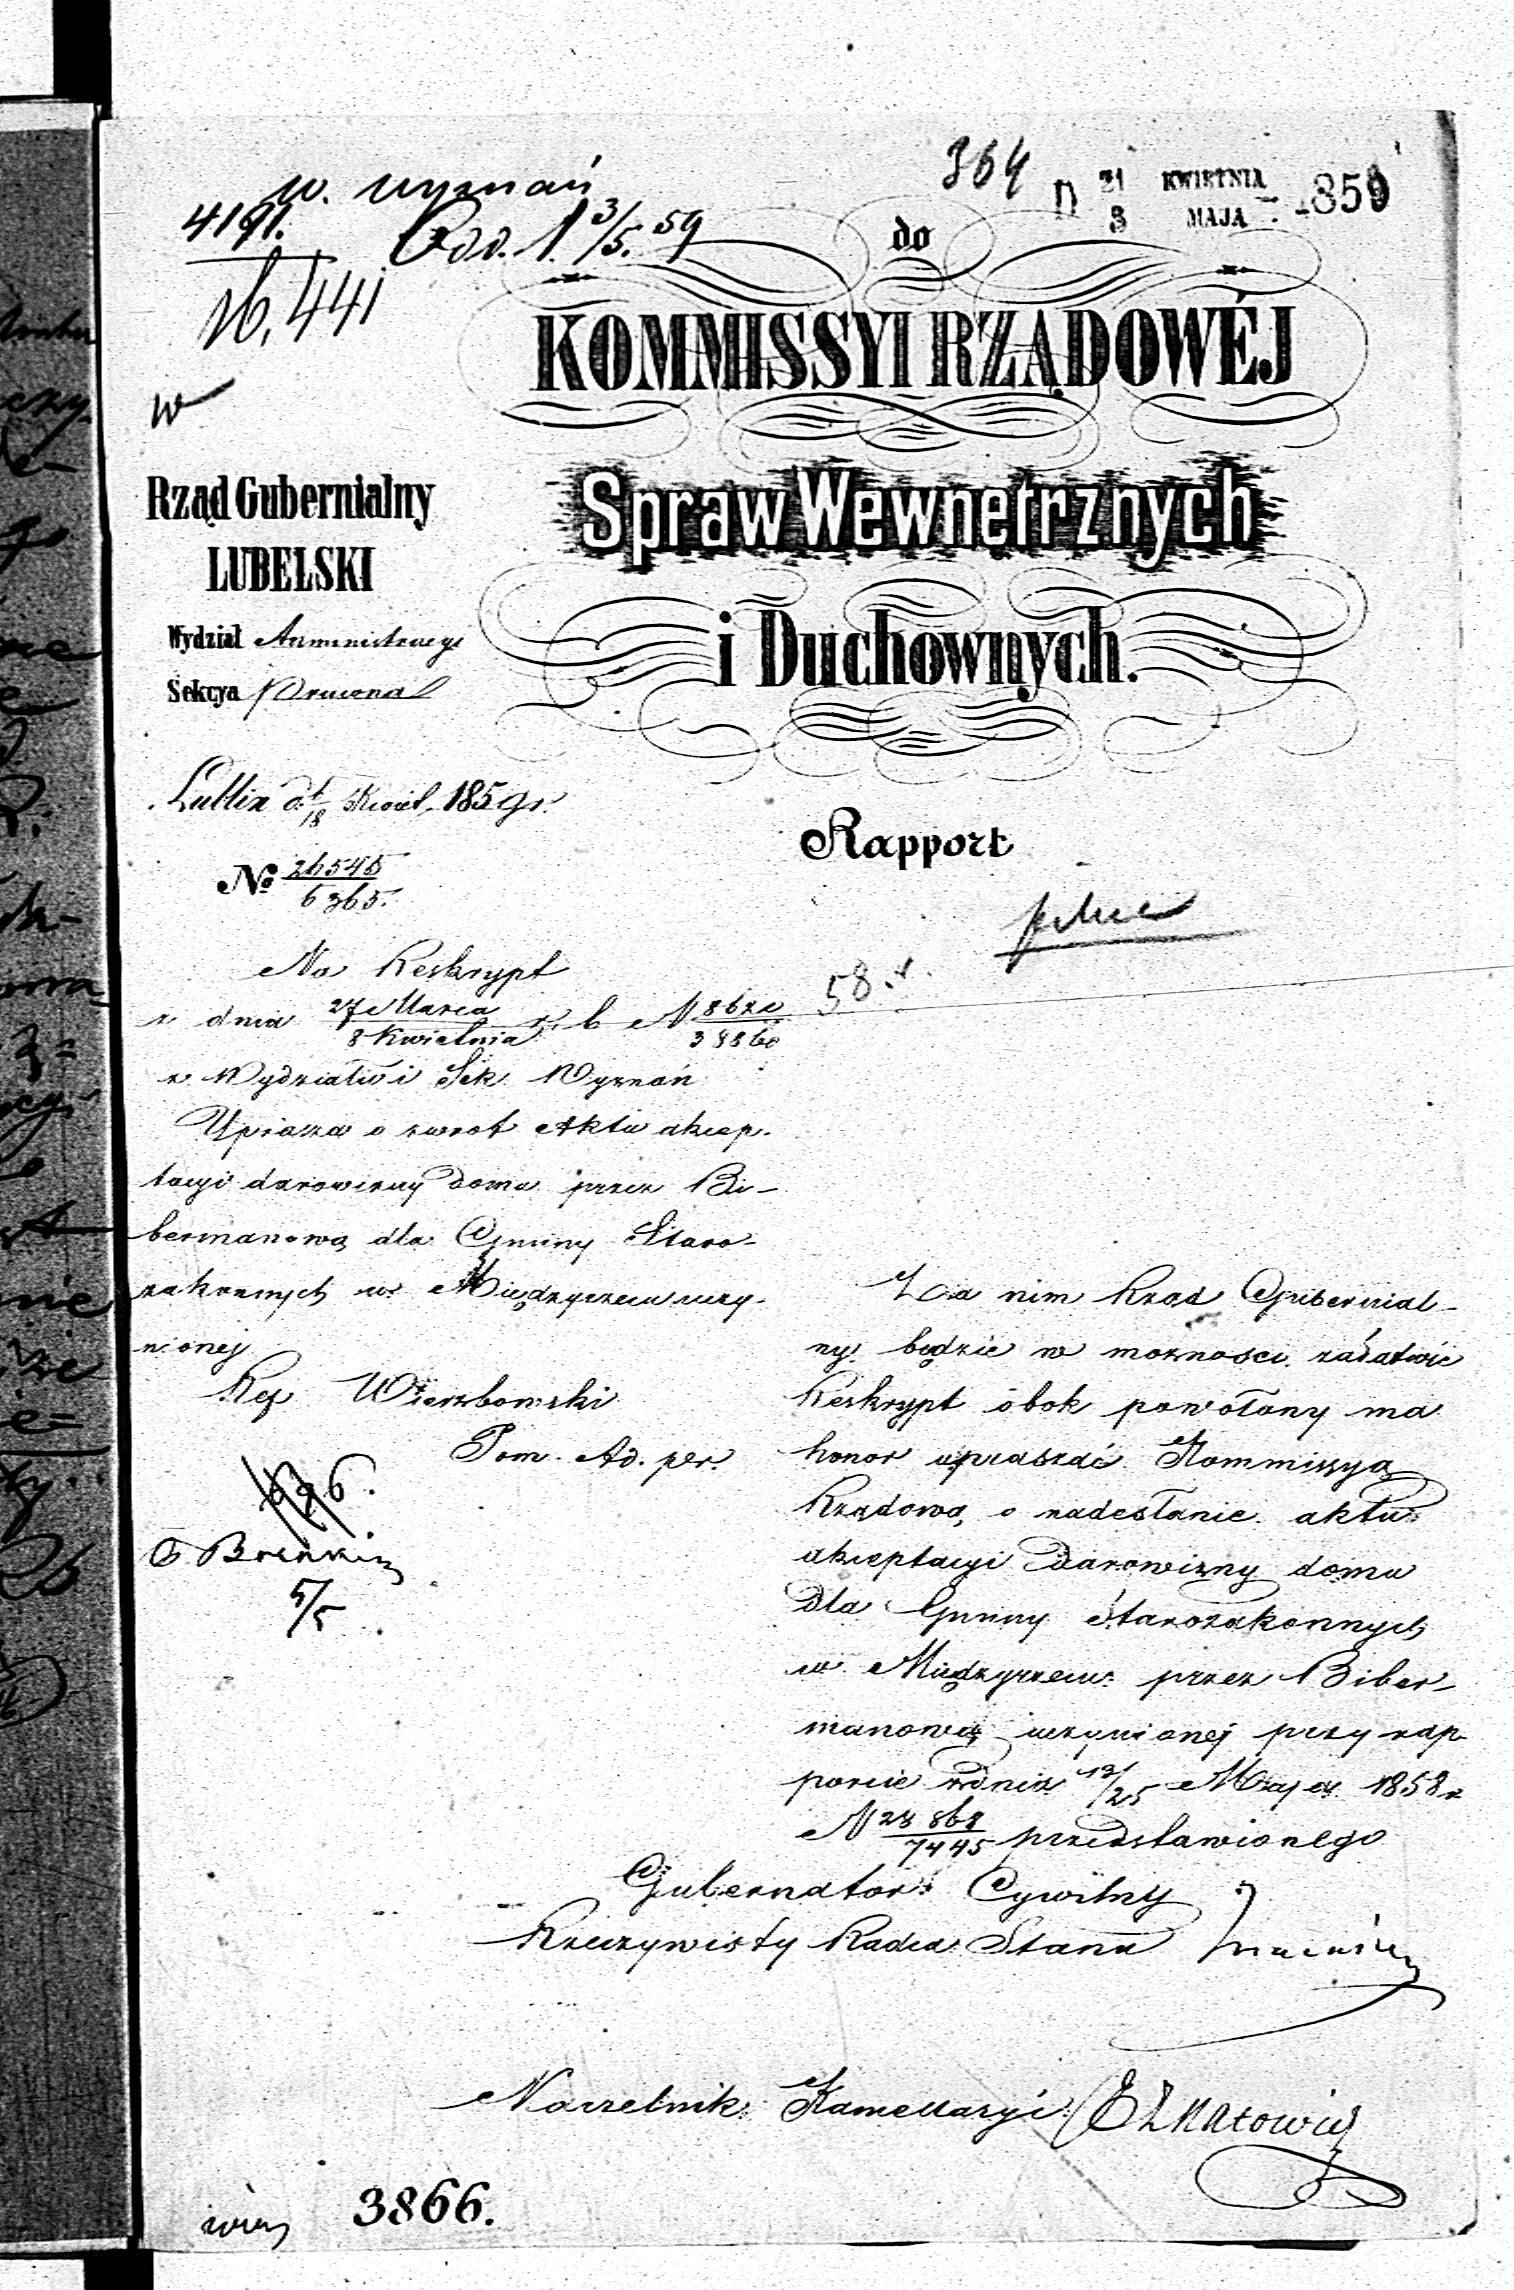 364
D 21 KWIETNIA 1859
3 MAJA
w. wyznań
4191.
Odd. 1. 3/5. 59
N. 441
w
do
KOMMISSYI RZĄDOWÉJ
Spraw Wewnetrznych
i Duchownych.
Rząd Gubernialny
LUBELSKI
Wydział
Sekcya
Lublin d. /18 Kwiet. 1859 r.
No 26545/6365.
Rapport
pilne
Na Reskrypt
58.
z dnia 27 Marca/8 Kwietnia r. b. N
z Wydziału i Sek. Wyznań
Uprasza o zwrot Aktu akcep-
tacyi darowizny domu przez Bi-
bermanową dla Gminy Staro-
zakonnych w Międzyrzecu uczy-
nionej
Ref Wierzbowski
Pom. Ad. per.
696.
5/5
Za nim Rząd Gubernial-
ny będzie w możności załatwić
Reskrypt obok powołany ma
honor upraszać Kommissyą
Rządową o nadesłanie aktu
akceptacyi Darowizny domu
dla Gminy Starozakonnych
w Międzyrzecu przez Biber-
manową uczynionej przy rap-
porcie z dnia 13/25 Maja 1858 r
N 7445 przedstawionego
Gubernator Cywilny
Rzeczywisty Radca Stanu
Naczelnik Kancellaryi
3866.